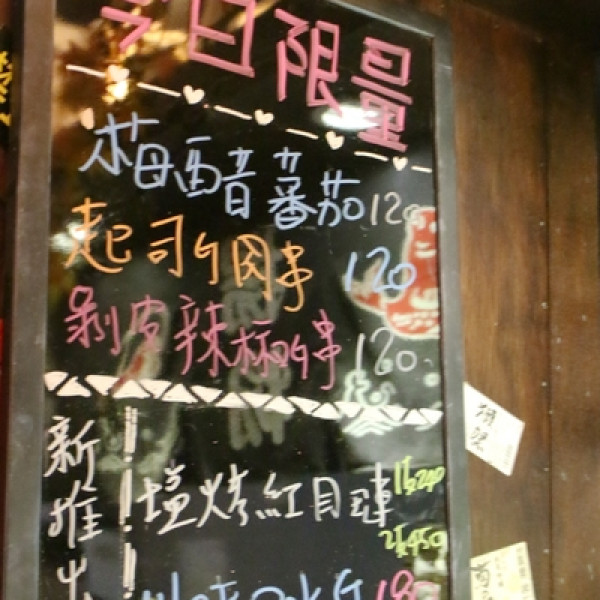 今日限量
梅醋番茄 120
起司牛肉串 120
剝皮辣椒串 120
新推出!!
塩烤紅目鰱 1隻240
2隻450
180